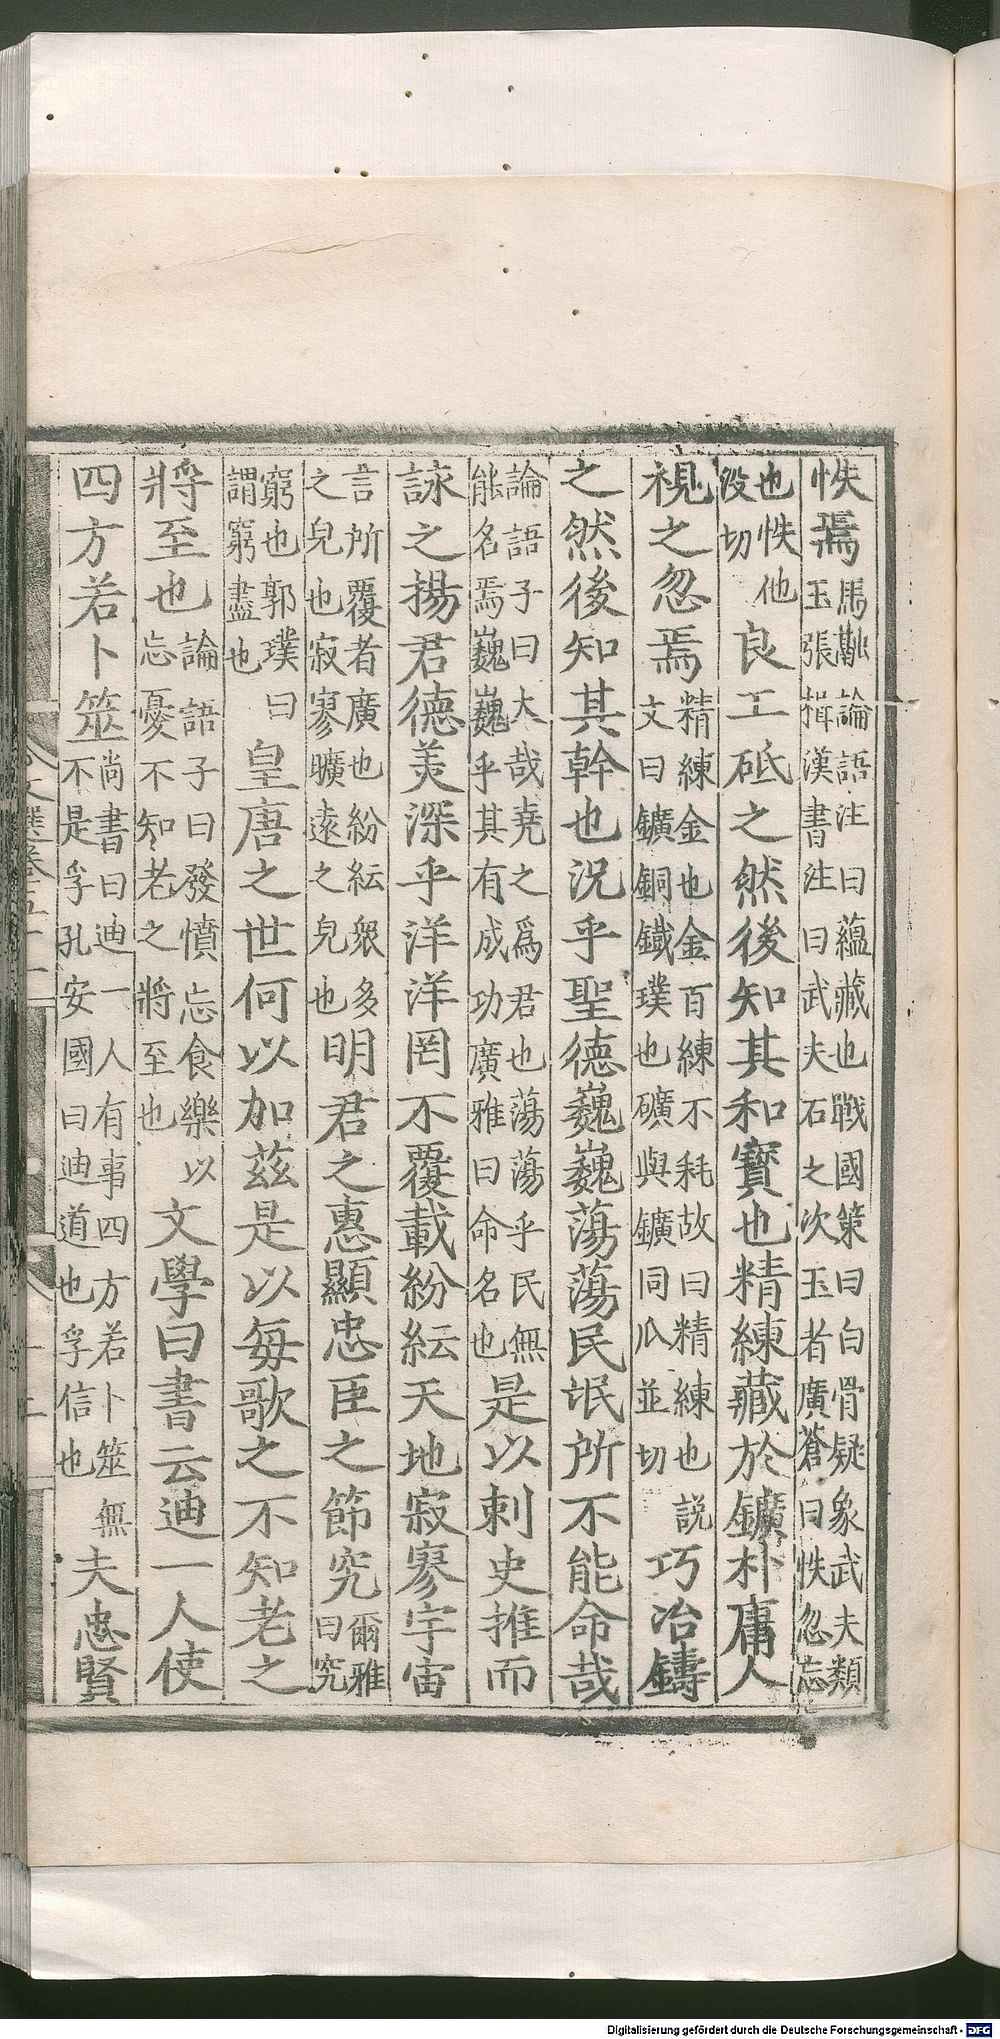 怢焉馬融論語注曰蘊藏也戰國策曰白骨疑象武夫類玉張揖漢書注曰武夫石之次玉者廣蒼曰怢忽忘
也怢他沒切良工砥之然後知其和寶也精練藏於鑛朴庸人
視之忽焉精練金也金百練不耗故曰精練也說文曰鑛銅鐵璞也礦與鑛同瓜並切巧冶鑄
之然後知其幹也況乎聖德巍巍蕩蕩民氓所不能命哉
論語子曰大哉堯之爲君也蕩蕩乎民無能名焉巍巍乎其有成功廣雅曰命名也是以刺史推而
詠之揚君德美深乎洋洋罔不覆載紛紜天地寂寥宇宙
言所覆者廣也紛紜衆多之皃也寂寥曠遠之皃也明君之惠顯忠臣之節究爾雅曰究
窮也郭璞曰謂窮盡也皇唐之世何以加茲是以每歌之不知老之
將至也論語子曰發憤忘食樂以忘憂不知老之將至也文學曰書云迪一人使
四方若卜筮尚書曰迪一人有事四方若卜筮無不是孚孔安國曰迪道也孚信也夫忠賢
Digitalisierung gefördert durch die Deutsche Forschungsgemeinschaft - DFG